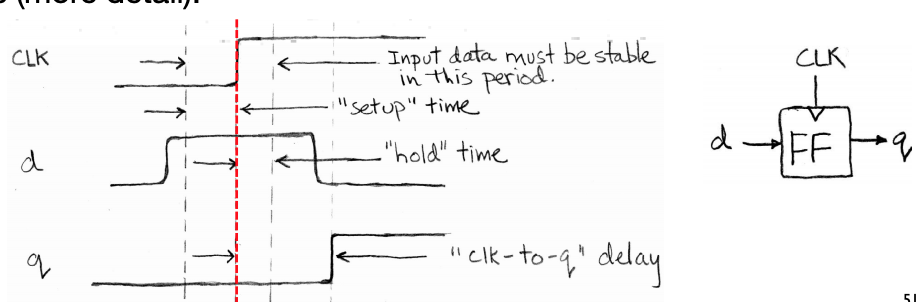 s (more detail).
CLK
Input data must be stable
in this period.
"setup" time
d
"hold" time
q
"clk-to-q" delay
CLK
d
FF
q
51